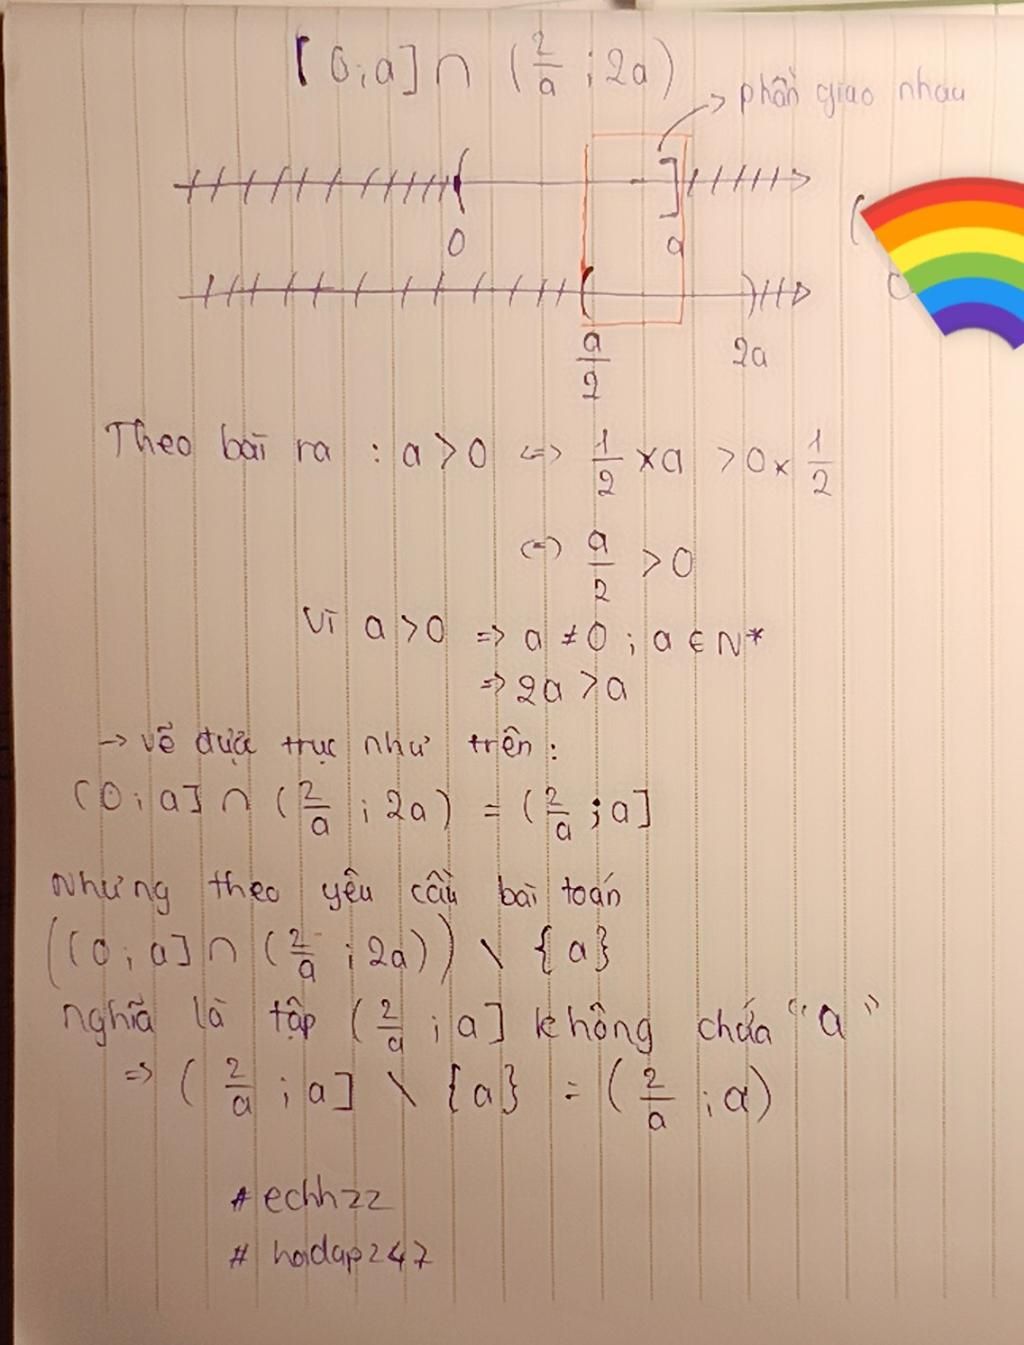 [0;a] ∩ (2/a ; 2a)
→ phần giao nhau
0 a
a/2 2a
Theo bài ra : a > 0 <=> 1/2 × a > 0 × 1/2
<=> a/2 > 0
Vì a > 0 => a ≠ 0 ; a ∈ N*
=> 2a > a
→ vẽ được trục như trên :
(0 ; a] ∩ (2/a ; 2a) = (2/a ; a]
Nhưng theo yêu cầu bài toán
((0 ; a] ∩ (2/a ; 2a)) \ {a}
nghĩa là tập (2/a ; a] không chứa "a"
=> (2/a ; a] \ {a} = (2/a ; a)
# echhzz
# hoidap247